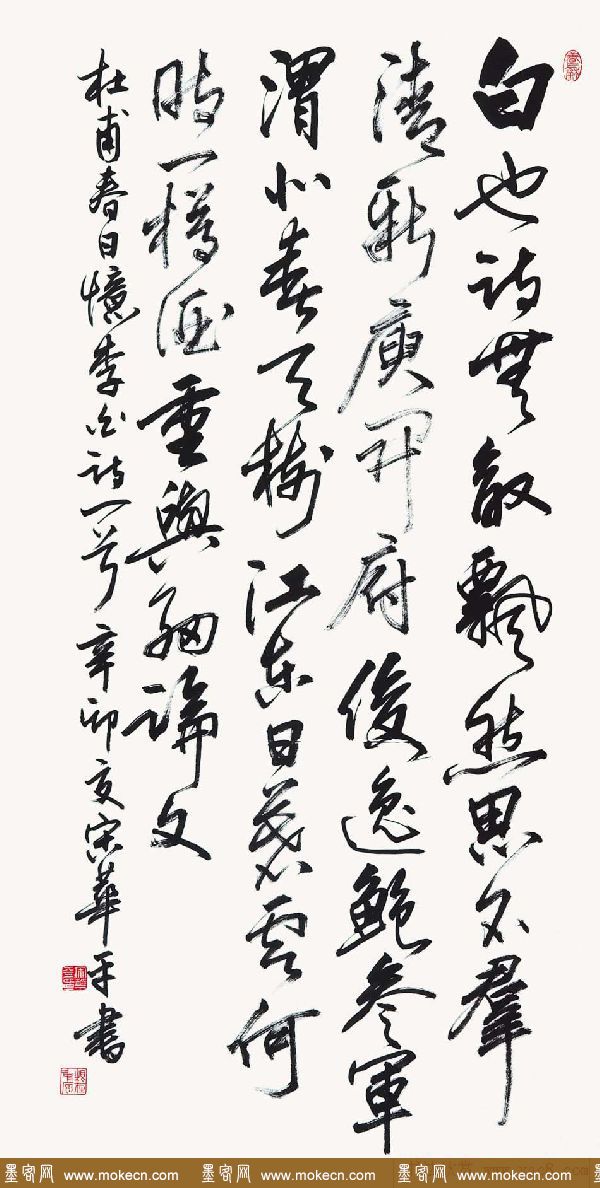 白也詩無敵飄然思不羣
清新庾開府俊逸鮑参軍
渭北春天樹江東日暮雲何
時一樽酒重與細論文
杜甫春日憶李白詩一首辛卯夏宋華平書
墨客网 www.mokecn.com 墨客网 www.mokecn.com 墨客网 www.mokecn.com